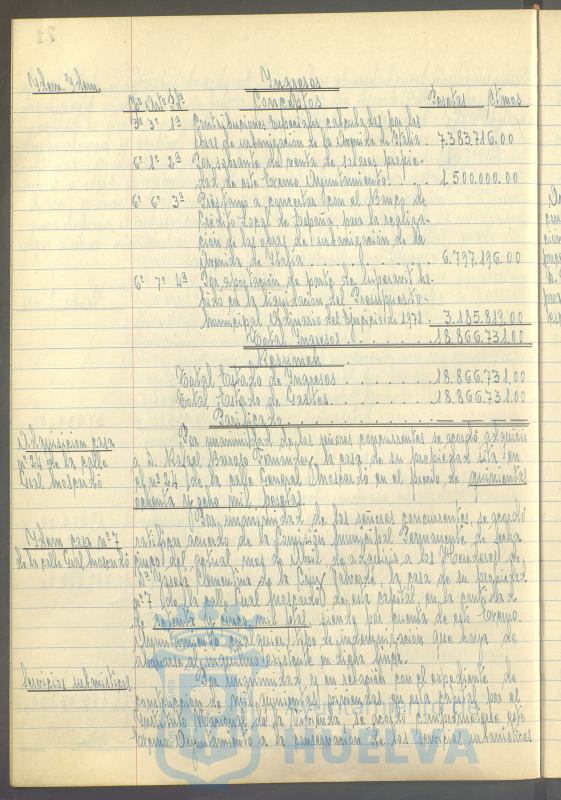 21
Idem. Idem.
Ingresos
Cpº Artº Pda
Conceptos
Pesetas Ctmos
3º 3º 1ª Contribuciones Especiales, calculadas por las
obras de urbanización de la Avenida de Italia . 7.383,716.00
6º 1º 2ª Por sobrante de venta de solares propie-
dad de este Excmo Ayuntamiento . 1.500,000.00
6º 6º 3ª Préstamo a concertar con el Banco de
Crédito Local de España para la realiza-
ción de las obras de urbanización de la
Avenida de Italia . . . . . 6.797,196.00
6º 7º 4ª Por aportación de parte de superavit
en la liquidación del Presupuesto
municipal Ordinario del Ejercicio de 1971 . 3.185.819.00
Total Ingresos . . . 18.866,731.00
Resumen .
Total Estado de Ingresos . . . . . 18.866,731.00
Total Estado de Gastos . . . . . 18.866,731.00
Adquisicion casa
nº 24 de la calle
Gral Moscardó
Por unanimidad de los señores concurrentes se acordó adquirir
a D. Rafael Barroso Fernandez la casa de su propiedad sita en
el nº 24 de la calle General Moscardó en el precio de quinientas
ochenta y ocho mil pesetas.
Idem casa nº 7
de la calle Gral Moscardó
Por unanimidad de los señores concurrentes, se acordó
ratificar acuerdo de la Comisión Municipal Permanente de fecha
cinco del actual mes de Abril de adquirir a los Herederos de
Dª Clementina de la Cruz la casa de su propiedad
nº 7 de la calle Gral Moscardó de esta capital, en la cantidad
de setenta y cinco mil ptas, siendo por cuenta de este Excmo.
Ayuntamiento cualquier tipo de indemnización que haya de
abonarse al inquilino existente en dicha finca.
Servicios urbanísticos
Por unanimidad y en relación con el expediente de
construcción de mil quinientas viviendas en esta capital por el
Instituto Nacional de la Vivienda se acordó comprometerse este
Excmo Ayuntamiento a la conservación de los servicios urbanísticos
Ayuntamiento de
HUELVA